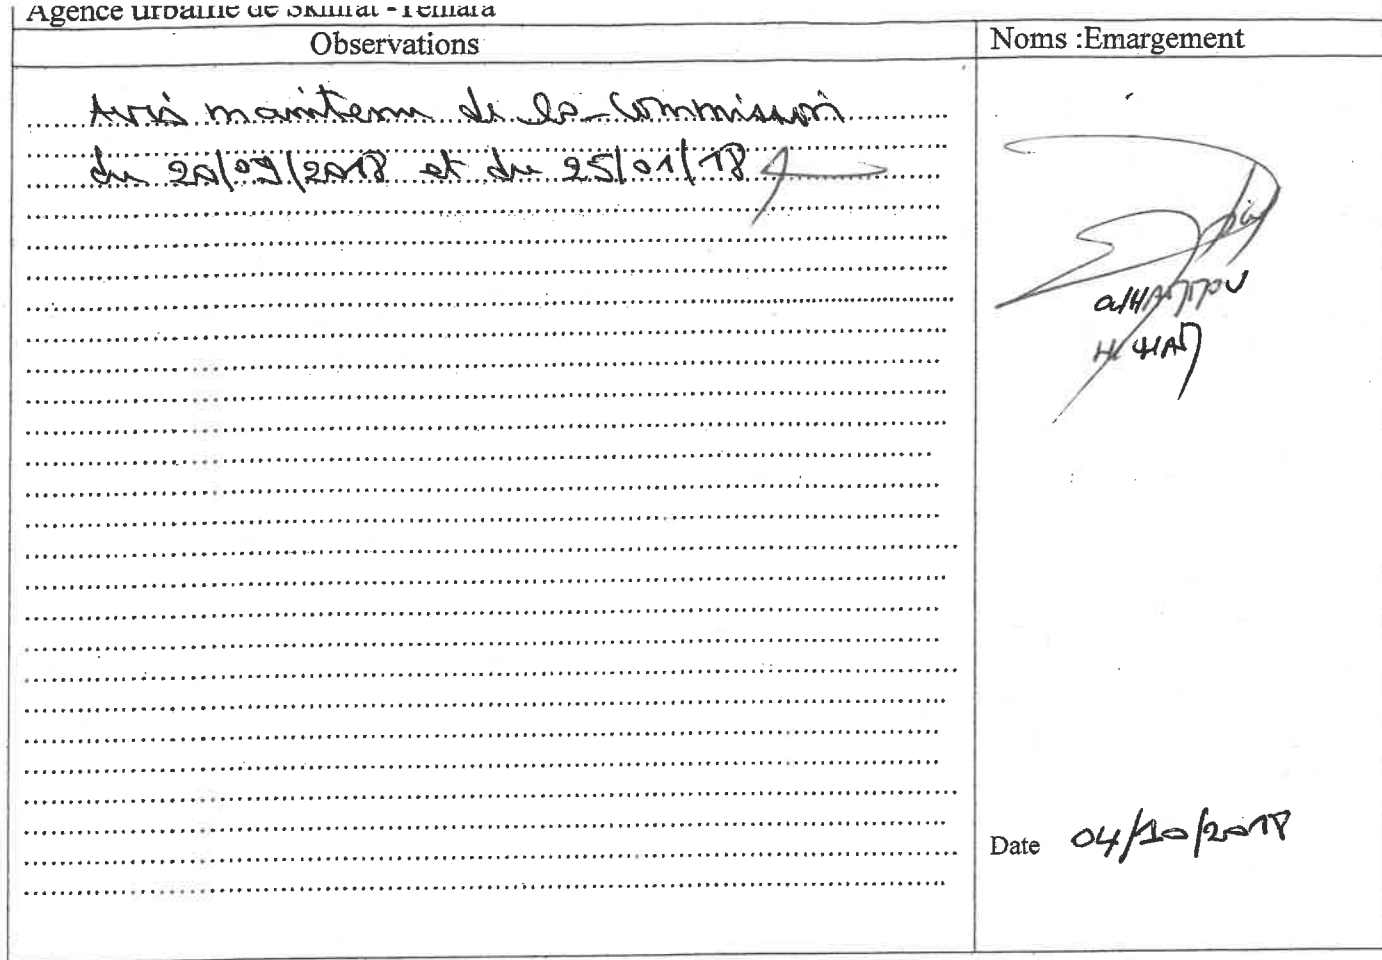 Agence urbaine de Skhirat -Temara
Observations
Noms :Emargement
Avis maintenu de la Commission
du 20/09/2018 et du 25/01/18
HICHAM
Date 04/10/2018